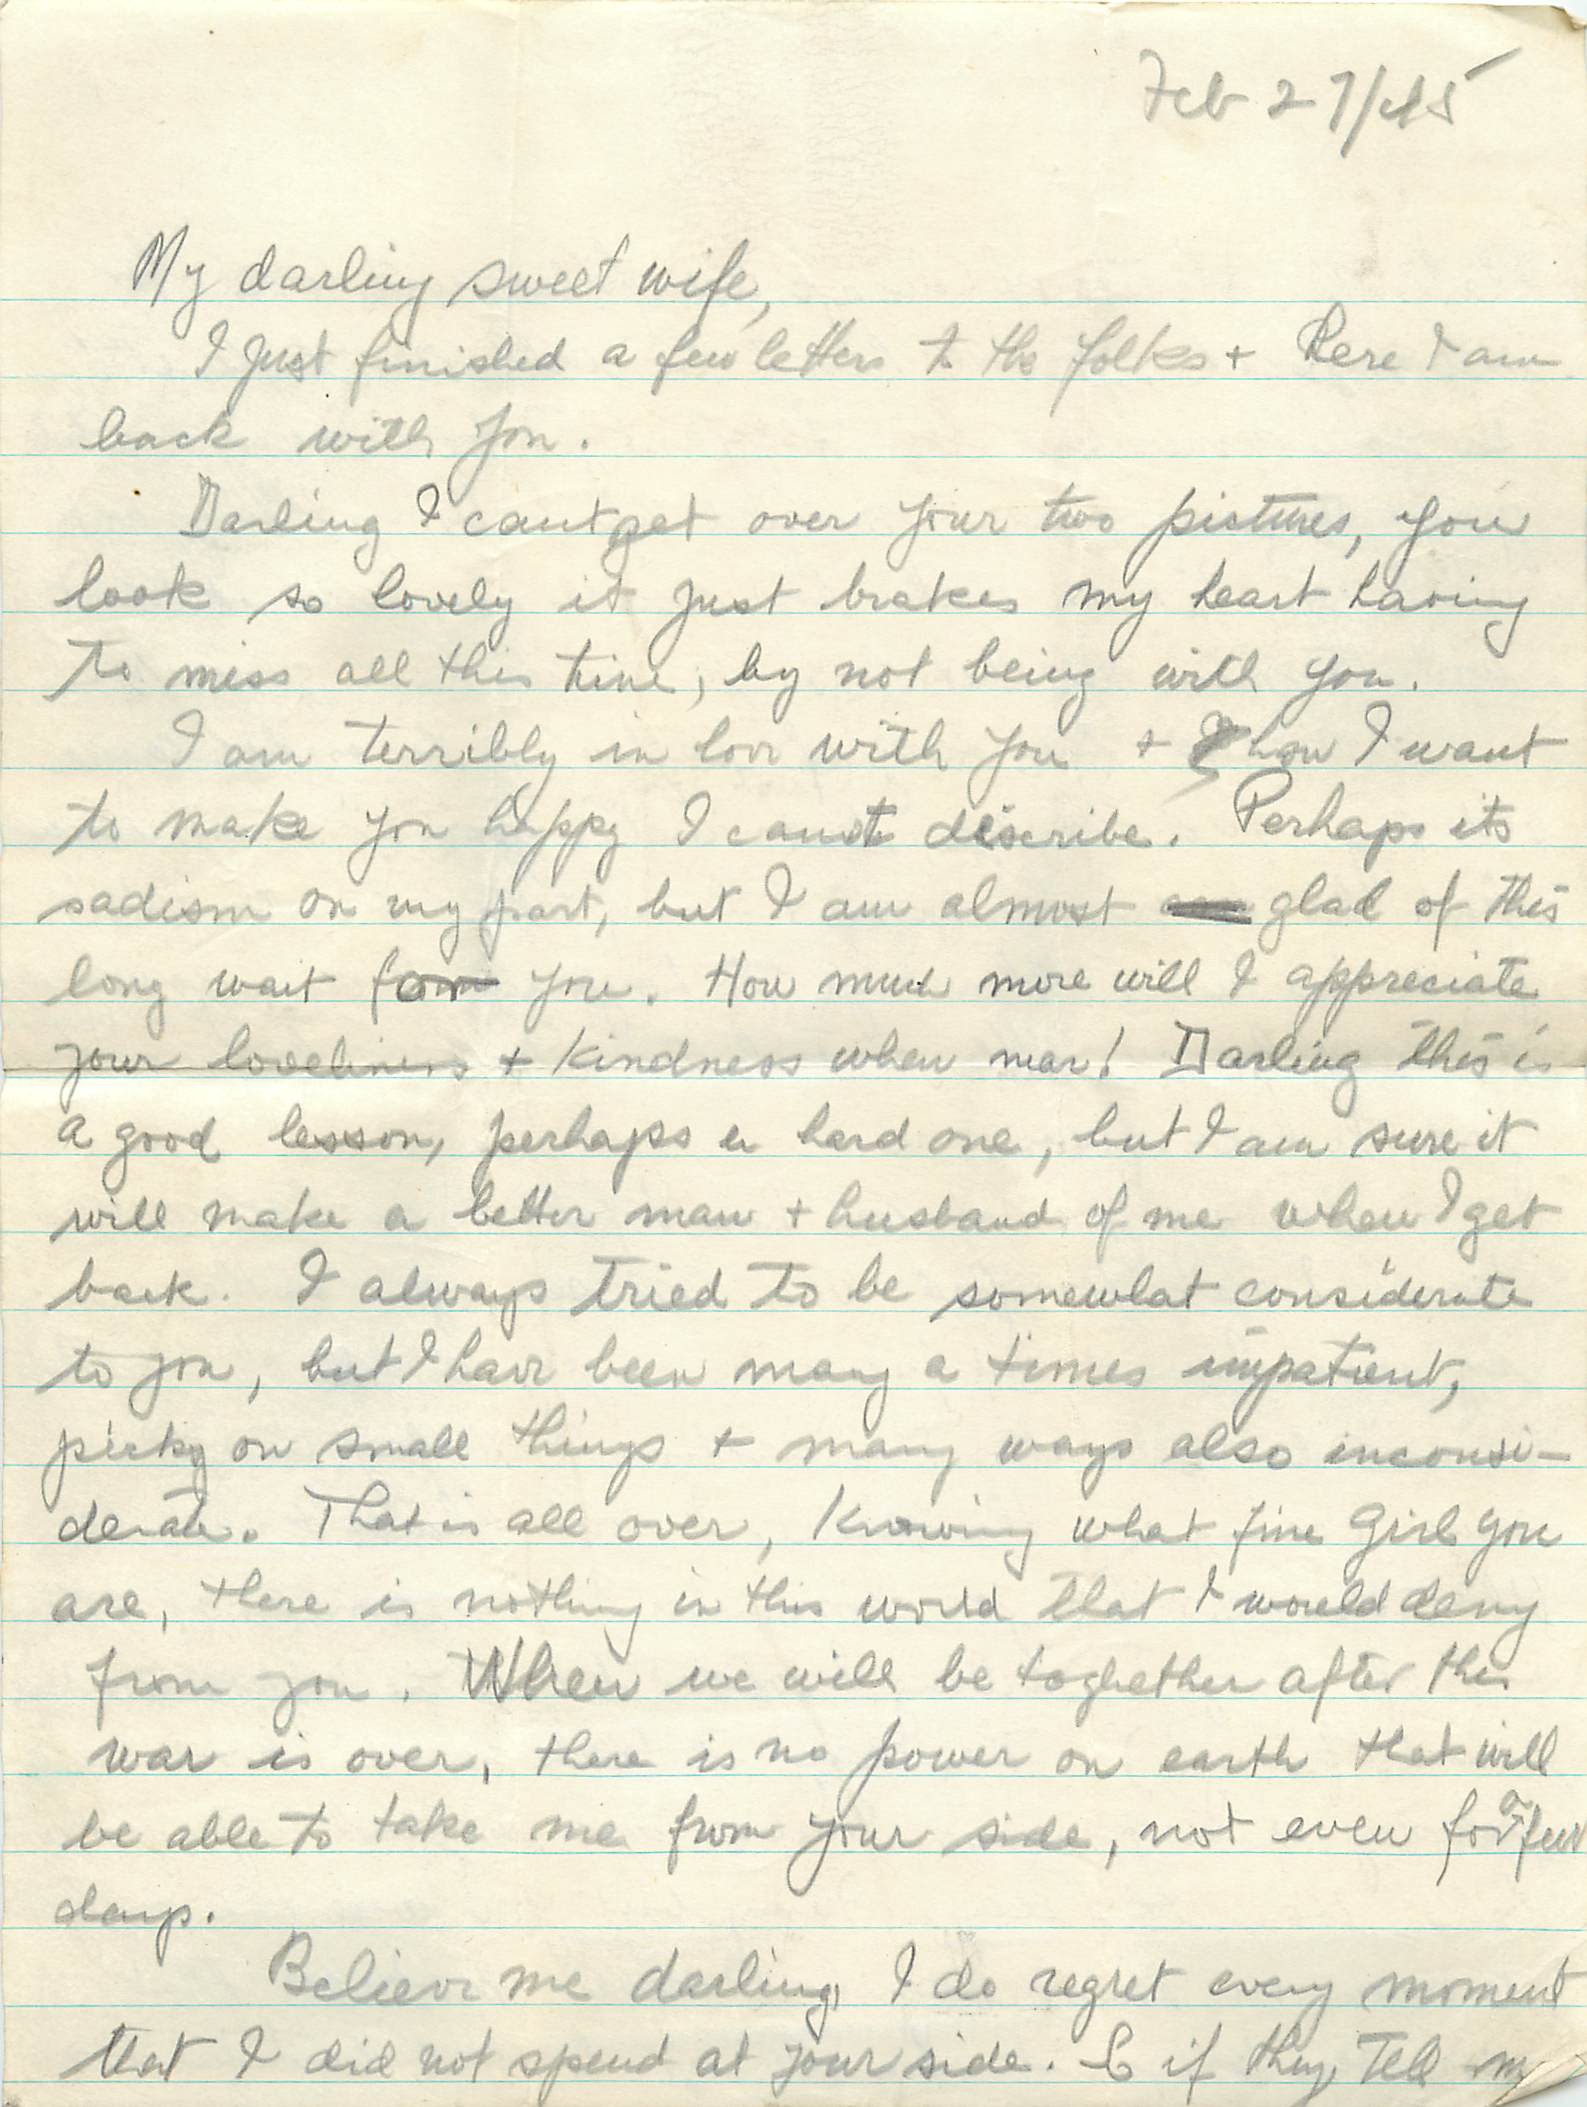 Feb 27/45
My darling sweet wife,
I just finished a few letters to the folks + here I am
back with you.
Darling I cant get over your two pictures, you
look so lovely it just brakes my heart having
to miss all this time, by not being with you.
I am terribly in love with you + how I want
to make you happy I cannot discribe. Perhaps its
sadism on my part, but I am almost glad of this
long wait for you. How much more will I appreciate
your loveliness + kindness when near! Darling this is
a good lesson, perhaps a hard one, but I am sure it
will make a better man + husband of me when I get
back. I always tried to be somewhat considerate
to you, but I have been many a times impatient,
picky on small things + many ways also inconsi-
derate. That is all over, knowing what fine girl you
are, there is nothing in this world that I would deny
from you. When we will be toghether after this
war is over, there is no power on earth that will
be able to take me from your side, not even for a few
days.
Believe me darling, I do regret every moment
that I did not spend at your side. & if they tell